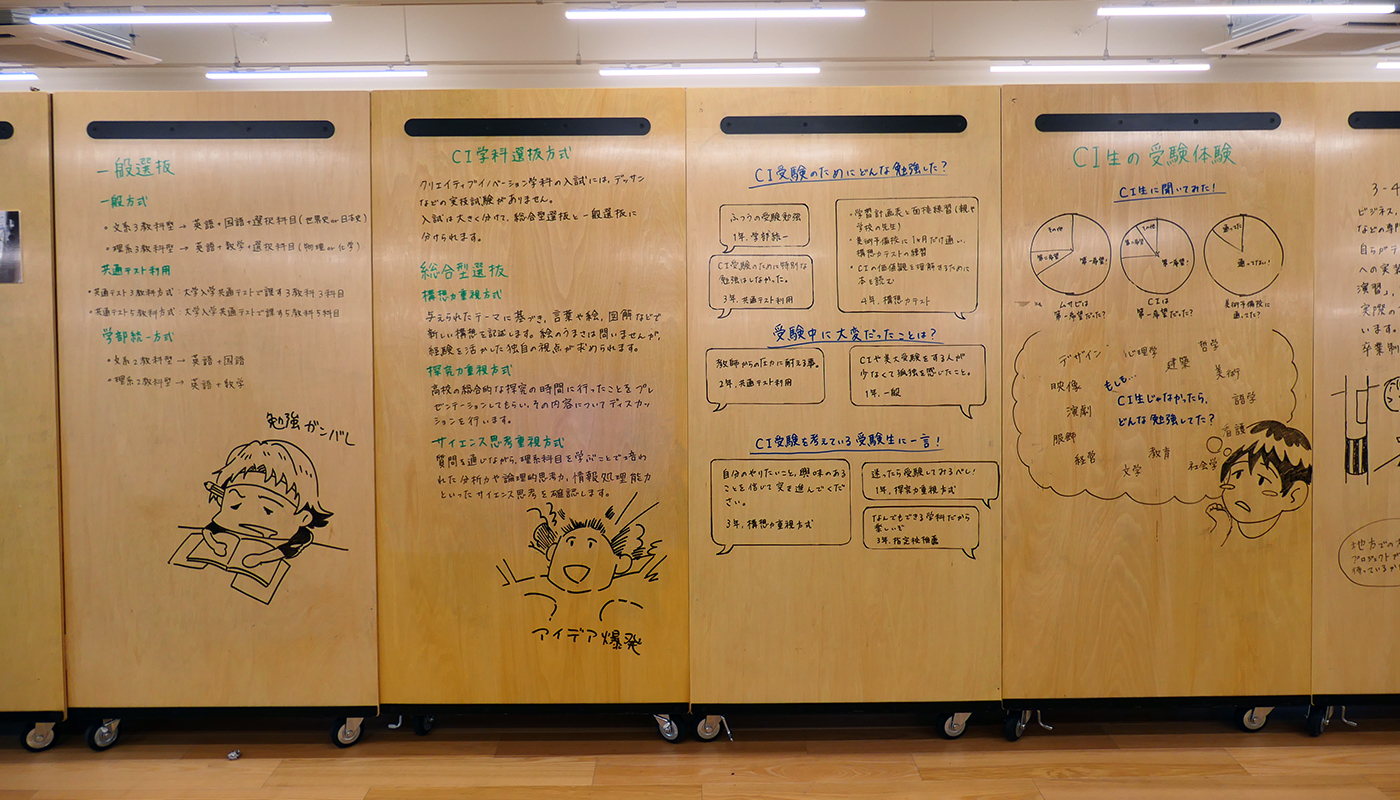 一般選抜
一般方式
・文系3教科型→ 英語+国語+選択科目(世界史or日本史)
・理系3教科型→ 英語+数学+選択科目(物理or化学)
共通テスト利用
・共通テスト3教科方式:大学入学共通テストで課す3教科3科目
・共通テスト5教科方式:大学入学共通テストで課す5教科5科目
学部統一方式
・文系2教科型→ 英語+国語
・理系2教科型→ 英語+数学
勉強ガンバレ
CI学科選抜方式
クリエイティブイノベーション学科の入試には、デッサン
などの実技試験がありません。
入試は大きく分けて、総合型選抜と一般選抜に
分けられます。
総合型選抜
構想力重視方式
与えられたテーマに基づき、言葉や絵、図解などで
新しい構想を記述します。絵のうまさは問いませんが、
経験を活かした独自の視点が求められます。
探究力重視方式
高校の総合的な探究の時間に行ったことをプレ
ゼンテーションしてもらい、その内容についてディスカッ
ションを行います。
サイエンス思考重視方式
質問を通じながら、理系科目を学ぶことで培わ
れた分析力や論理的思考力、情報処理能力
といったサイエンス思考を確認します。
アイデア爆発
CI受験のためにどんな勉強した?
ふつうの受験勉強
1年、学部統一
CI受験のために特別な
勉強はしなかった。
3年、共通テスト利用
・学習計画表と面接練習(親や
学校の先生)
・美術予備校に1ヶ月だけ通い、
構想力テストの練習
・CIの価値観を理解するために
本を読む
4年、構想力テスト
受験中に大変だったことは?
教師からの圧力に耐える事。
2年、共通テスト利用
CIや美大受験をする人が
少なくて孤独を感じたこと。
1年、一般
CI受験を考えている受験生に一言!
自分のやりたいこと、興味のある
ことを信じて突き進んでくだ
さい。
3年、構想力重視方式
迷ったら受験してみるべし!
1年、探究力重視方式
なんでもできる学科だから
楽しいぞ
3年、指定校推薦
CI生の受験体験
CI生に聞いてみた!
その他
第二希望
第一希望!
その他
第二希望
第一希望!
通ってた!
通ってない!
ムサビは
第一希望だった?
CIは
第一希望だった?
美術予備校に
通ってた?
デザイン
心理学
哲学
建築
映像
もしも…
美術
CI生じゃなかったら、
語学
演劇
どんな勉強してた?
服飾
看護
経営
教育
文学
社会学
3-4
ビジネス
などの専門
自らがテ
への実
演習」、
実際の
います。
卒業制
地方での
プロジェクトが
待っているか